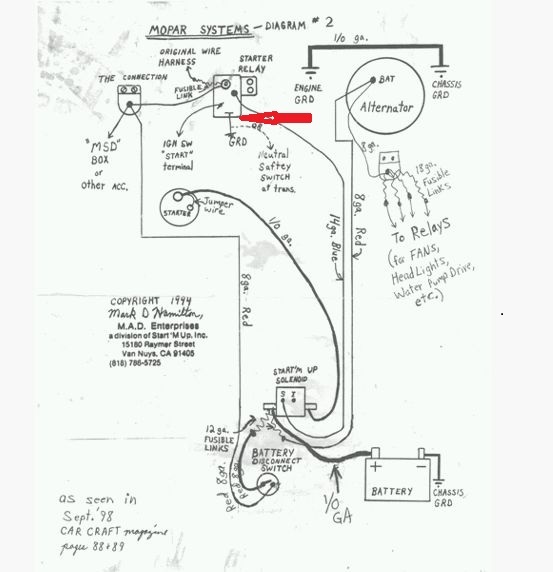 MOPAR SYSTEMS - DIAGRAM #2
1/0 ga.
ORIGINAL WIRE
HARNESS
STARTER
RELAY
ENGINE
GRD
BAT
Alternator
CHASSIS
GRD
THE CONNECTION
FUSIBLE
LINK
"MSD"
BOX
or
other ACC.
IGN SW
"START"
terminal
GRD
OR
Neutral
Saftey
SWITCH
at trans.
8ga.
18ga.
Fusible
Links
To Relays
(for FANS,
HeadLights,
Water Pump Drive,
etc.)
STARTER
Jumper
wire
1/0 ga.
14ga. Blue
8ga. Red
8ga. Red
COPYRIGHT 1994
Mark D Hamilton,
M.A.D. Enterprises
a division of Start 'M Up, Inc.
15180 Raymer Street
Van Nuys, CA 91405
(818) 786-5725
START'M UP
SOLENOID
S I
12 ga.
FUSIBLE
LINKS
BATTERY
DISCONNECT
SWITCH
Red 8ga.
Red 8ga.
+ -
BATTERY
CHASSIS
GRD
1/0
GA
as seen in
Sept. '98
CAR CRAFT magazine
pages 88+89